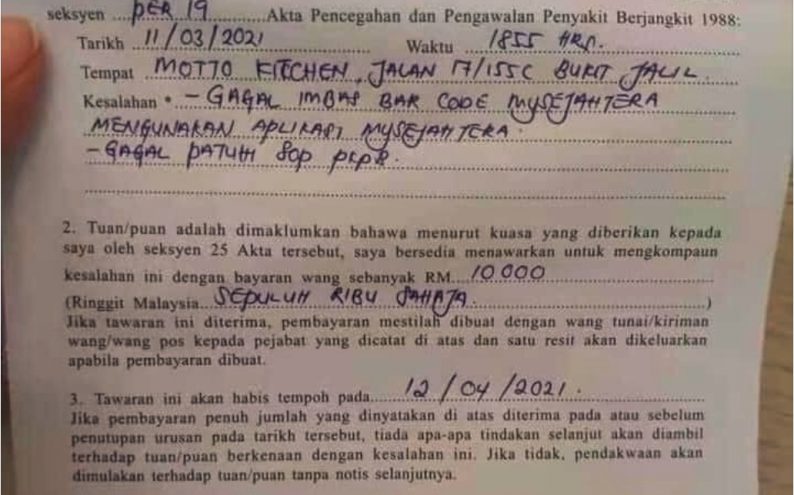 seksyen ....PER 19..........Akta Pencegahan dan Pengawalan Penyakit Berjangkit 1988:
Tarikh 11/03/2021 Waktu 1855 HRS.
Tempat MOTTO KITCHEN, JALAN 17/155C BUKIT JALIL.
Kesalahan * - GAGAL IMBAS BAR CODE MYSEJAHTERA
MENGUNAKAN APLIKASI MYSEJAHTERA.
- GAGAL PATUH SOP PKPB.
2. Tuan/puan adalah dimaklumkan bahawa menurut kuasa yang diberikan kepada
saya oleh seksyen 25 Akta tersebut, saya bersedia menawarkan untuk mengkompaun
kesalahan ini dengan bayaran wang sebanyak RM....10 000
(Ringgit Malaysia...SEPULUH RIBU SAHAJA.)
Jika tawaran ini diterima, pembayaran mestilah dibuat dengan wang tunai/kiriman
wang/wang pos kepada pejabat yang dicatat di atas dan satu resit akan dikeluarkan
apabila pembayaran dibuat.
3. Tawaran ini akan habis tempoh pada......12/04/2021.
Jika pembayaran penuh jumlah yang dinyatakan di atas diterima pada atau sebelum
penutupan urusan pada tarikh tersebut, tiada apa-apa tindakan selanjut akan diambil
terhadap tuan/puan berkenaan dengan kesalahan ini. Jika tidak, pendakwaan akan
dimulakan terhadap tuan/puan tanpa notis selanjutnya.